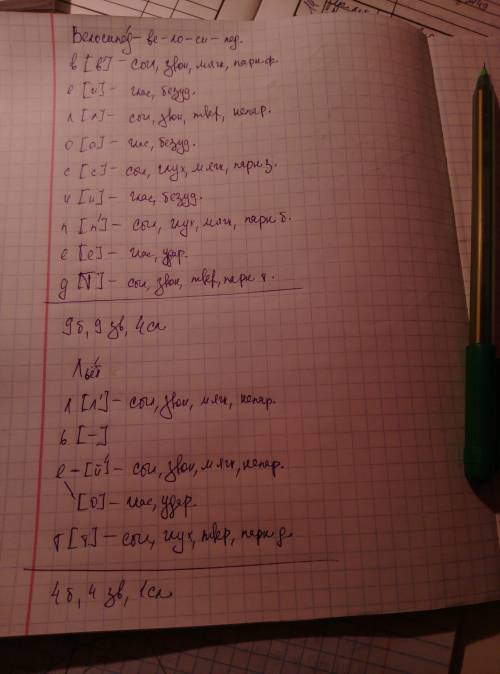 Велосипед – ве – ло – си – пед.
в [в'] – согл, звон, мягк, парн.ф.
е [и] – глас, безуд.
л [л] – согл, звон, твёр, непар.
о [а] – глас, безуд.
с [с'] – согл, глух, мягк, парн з.
и [и] – глас, безуд.
п [п'] – согл, глух, мягк, парн б.
е [е] – глас, удар.
д [т] – согл, звон, твер, парн т.
9 б, 9 зв, 4 сл
Льёт
л [л'] – согл, звон, мягк, непар.
ь [–]
е – [й'] – согл, звон, мягк, непар.
[о] – глас, удар.
т [т] – согл, глух, твер, парн д.
4 б, 4 зв, 1 сл